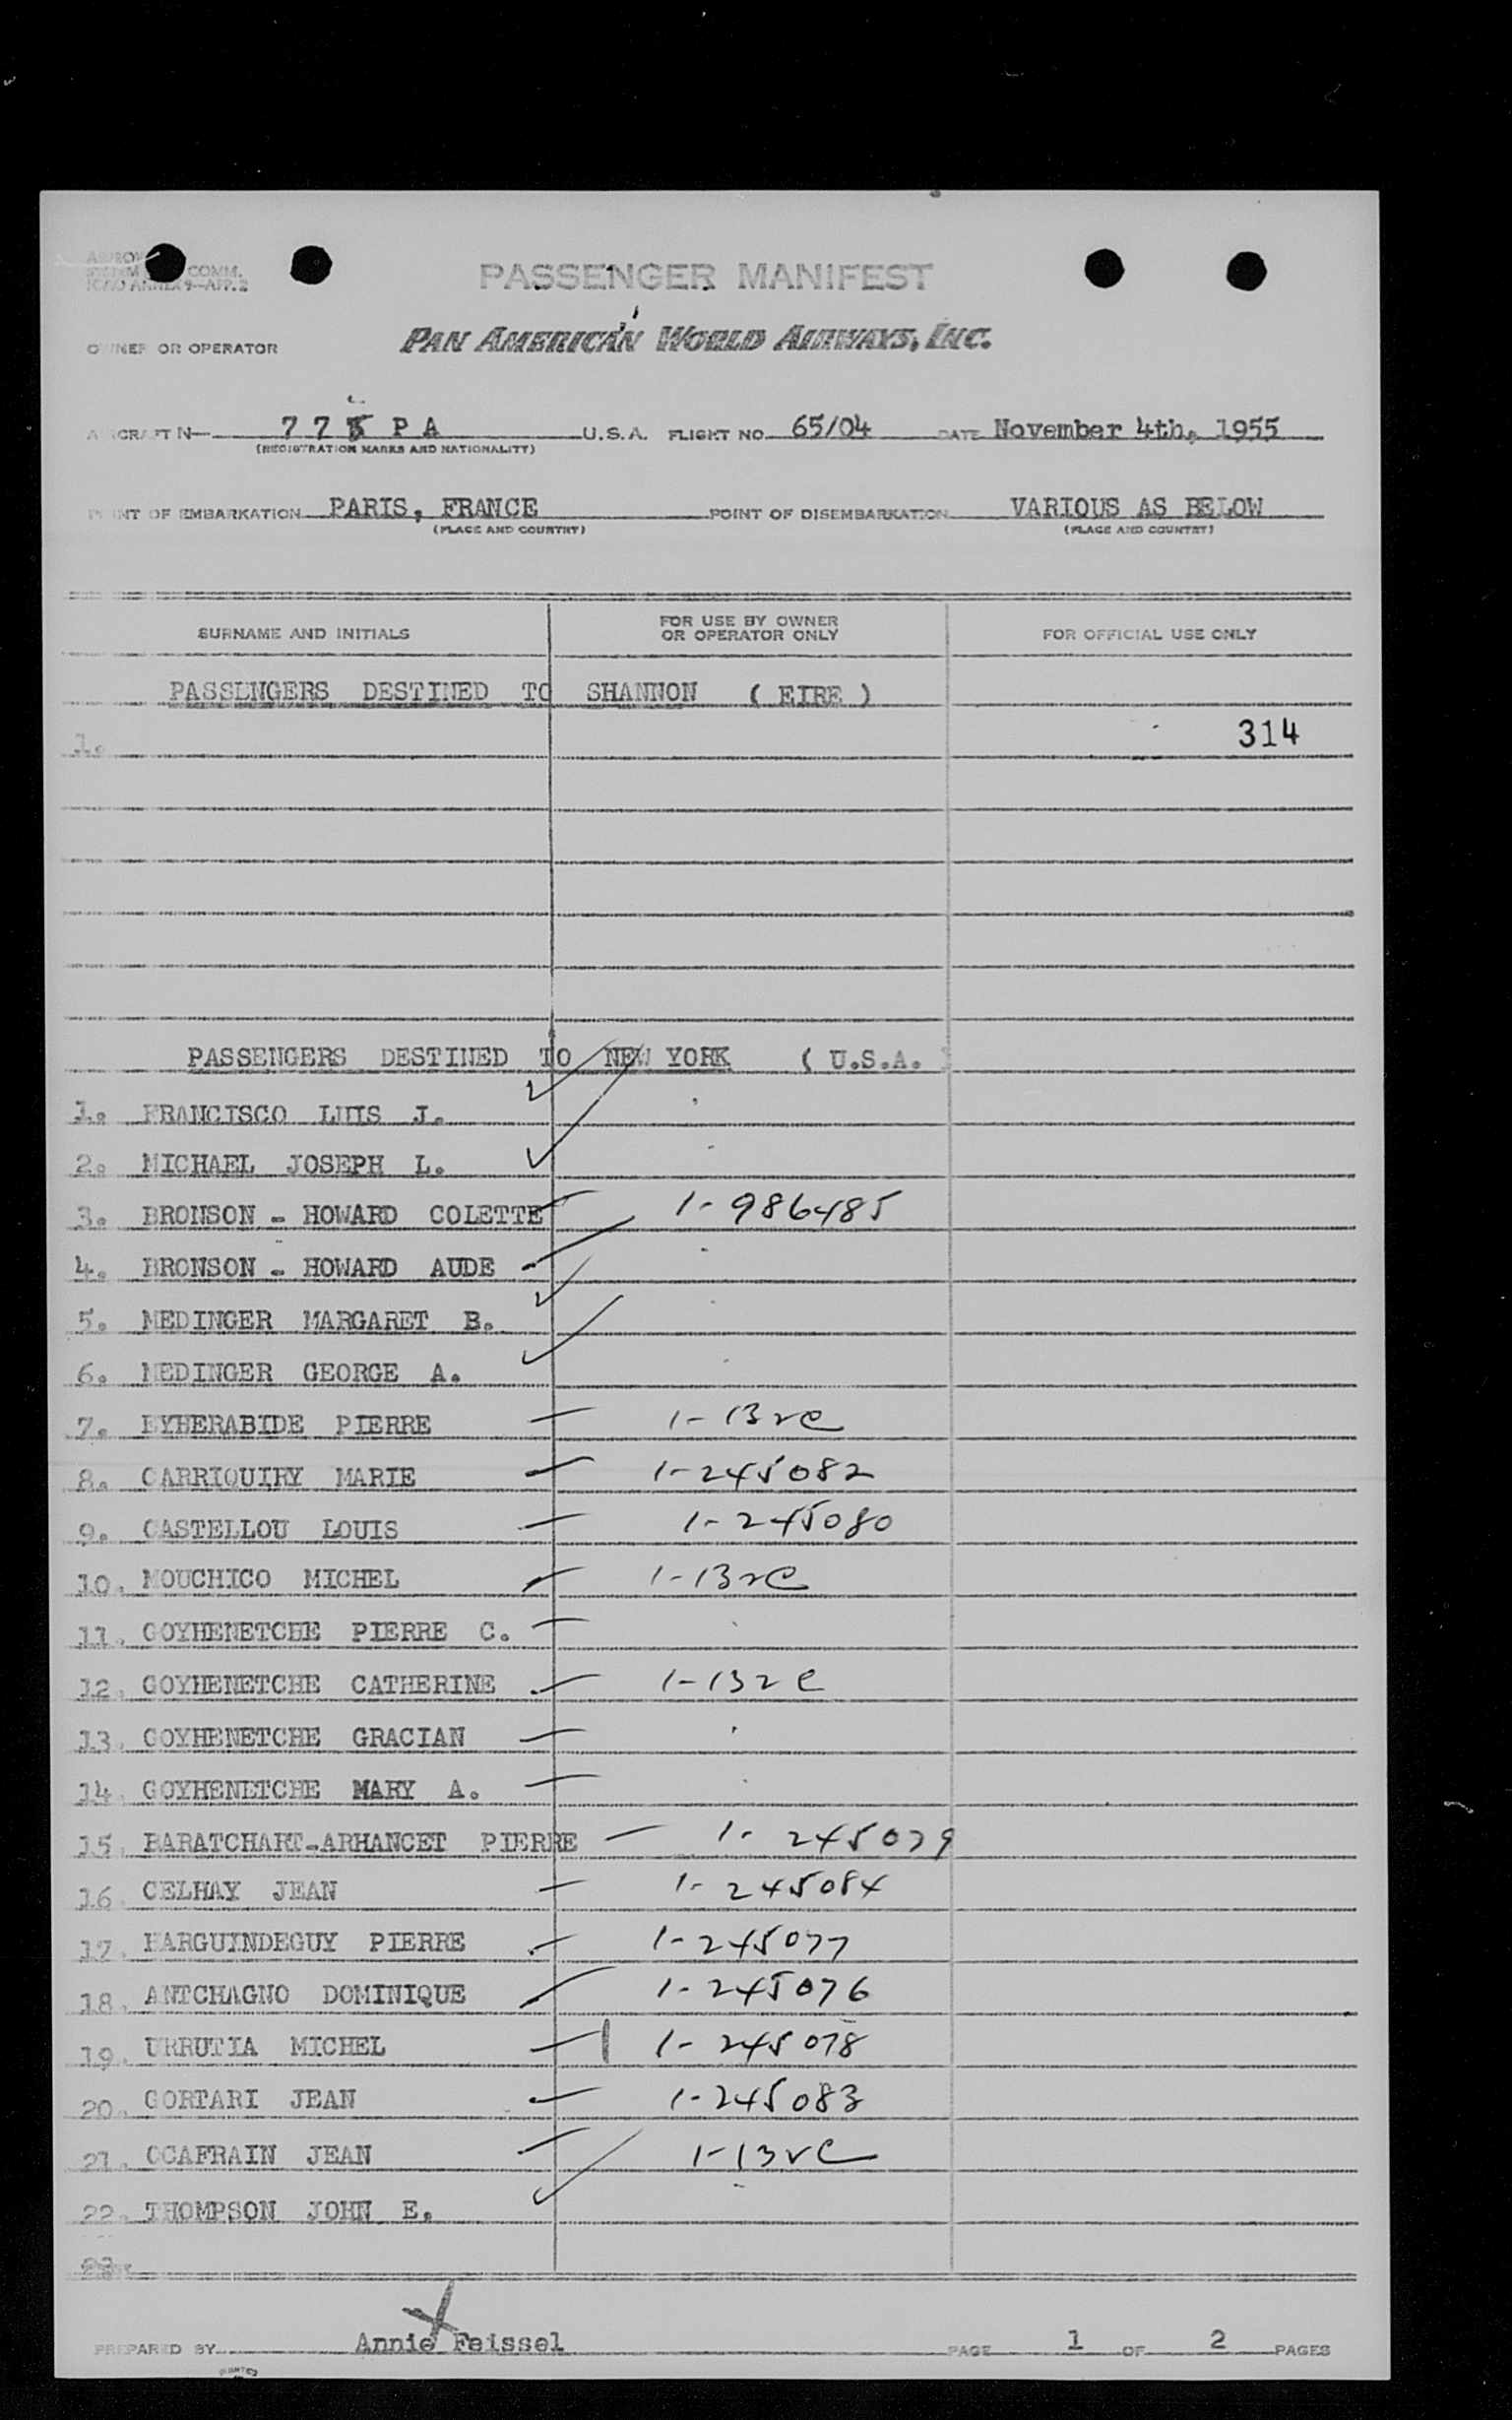 COMM.
ICAO ANNEX 9-APP. 2
PASSENGER MANIFEST
OWNER OR OPERATOR PAN AMERICAN WORLD AIRWAYS, INC.
AIRCRAFT N- 77 PA U.S.A. FLIGHT NO. 65/04 DATE November 4th, 1955
(REGISTRATION MARKS AND NATIONALITY)
POINT OF EMBARKATION PARIS, FRANCE POINT OF DISEMBARKATION VARIOUS AS BELOW
(PLACE AND COUNTRY) (PLACE AND COUNTRY)
SURNAME AND INITIALS FOR USE BY OWNER OR OPERATOR ONLY FOR OFFICIAL USE ONLY
PASSENGERS DESTINED TO SHANNON ( EIRE )
1. 314
PASSENGERS DESTINED TO NEW YORK ( U.S.A. )
1. FRANCISCO LUIS J.
2. MICHAEL JOSEPH L.
3. BRONSON - HOWARD COLETTE 1-986485
4. BRONSON - HOWARD AUDE
5. MEDINGER MARGARET B.
6. MEDINGER GEORGE A.
7. EYHERABIDE PIERRE 1-132C
8. CARRIQUIRY MARIE 1-245082
9. CASTELLOU LOUIS 1-245080
10. MOUCHICO MICHEL 1-132C
11. GOYHENETCHE PIERRE C.
12. GOYHENETCHE CATHERINE 1-132C
13. GOYHENETCHE GRACIAN
14. GOYHENETCHE MARY A.
15. BARATCHART-ARHANCET PIERRE 1-245079
16. CELHAY JEAN 1-245084
17. HARGUINDEGUY PIERRE 1-245077
18. ANTCHAGNO DOMINIQUE 1-245076
19. URRUTIA MICHEL 1-245078
20. GORTARI JEAN 1-245083
21. OCAFRAIN JEAN 1-132C
22. THOMPSON JOHN E.
23.
PREPARED BY Annie Feissel PAGE 1 OF 2 PAGES